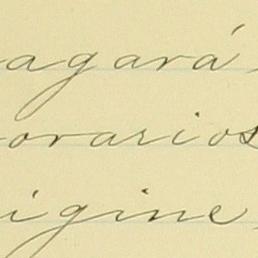 agará
orarios
igine